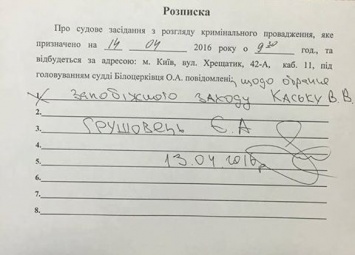 Розписка
Про судове засідання з розгляду кримінального провадження, яке
призначено на 14 04 2016 року о 9 30 год., та
відбудеться за адресою: м. Київ, вул. Хрещатик, 42-А, каб. 11, під
головуванням судді Білоцерківця О.А. повідомлені: щодо обрання
запобіжного заходу Каську В.В.
2.
3. Грушовець Є.А
4.
5. 13.04.2016р
6.
7.
8.